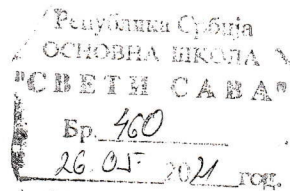 Република Србија
ОСНОВНА ШКОЛА
"СВЕТИ САВА"
Бр. 460
26.05 2021 год.